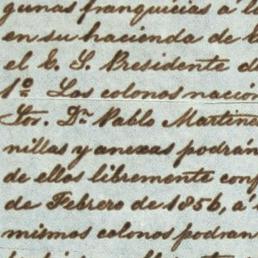 gunas franquicias a l
en su hacienda de
el E. S. Presidente d
1º Los colonos nacio
Sor. Dn. Pablo Martine
nillas y anexas podrán
de ellas libremente conf
de Febrero de 1856, á
mismos colonos podran